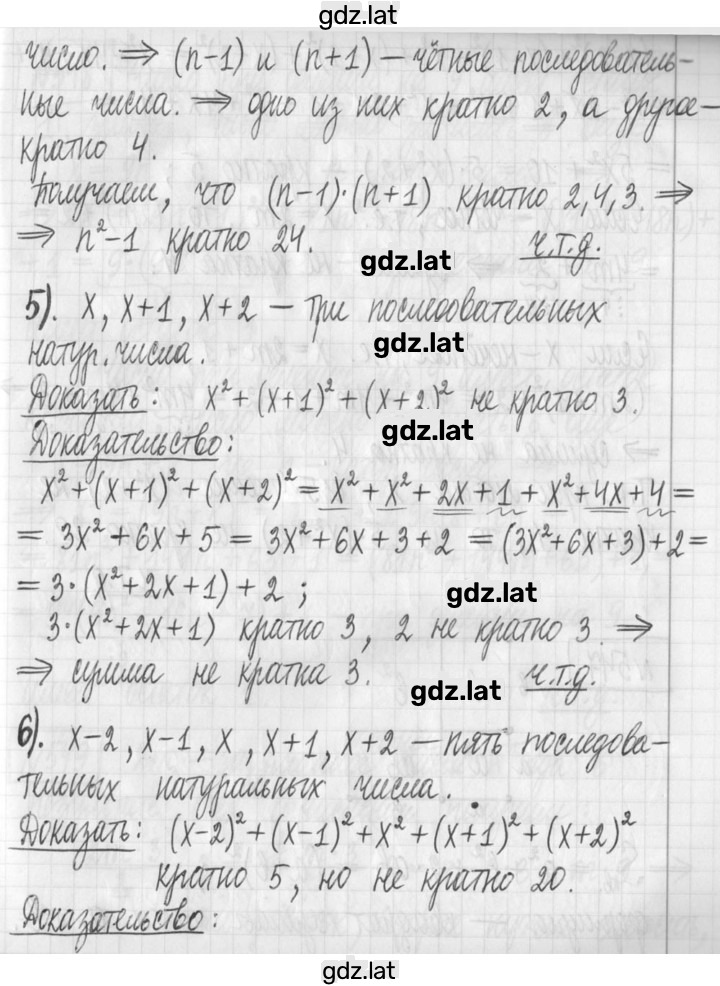 gdz.lat
число. ⇒ (n-1) и (n+1) – чётные последователь-
ные числа. ⇒ одно из них кратно 2, а другое –
кратно 4.
Получаем, что (n-1)·(n+1) кратно 2,4,3. ⇒
⇒ n²-1 кратно 24. ч.т.д.
gdz.lat
5). x, x+1, x+2 – три последовательных
gdz.lat
натур. числа.
Доказать: x²+(x+1)²+(x+2)² не кратно 3.
gdz.lat
Доказательство:
x²+(x+1)²+(x+2)² = x²+x²+2x+1+x²+4x+4 =
= 3x²+6x+5 = 3x²+6x+3+2 = (3x²+6x+3)+2 =
= 3·(x²+2x+1)+2 ;
gdz.lat
3·(x²+2x+1) кратно 3, 2 не кратно 3. ⇒
⇒ сумма не кратна 3. ч.т.д.
gdz.lat
6). x-2, x-1, x, x+1, x+2 – пять последова-
тельных натуральных числа.
Доказать: (x-2)²+(x-1)²+x²+(x+1)²+(x+2)²
кратно 5, но не кратно 20.
Доказательство:
gdz.lat